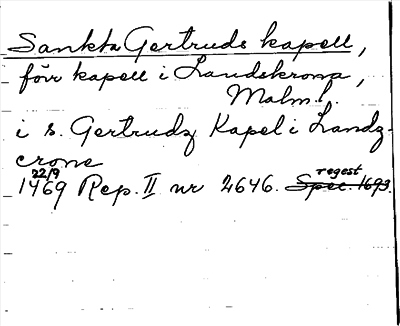 Sankta Gertruds kapell,
förr kapell i Landskrona,
Malm.l.
i s. Gertrudz Kapel i Landz-
crone
22/9 regest
1469 Rep. II nr 2646. Spec. 1693.